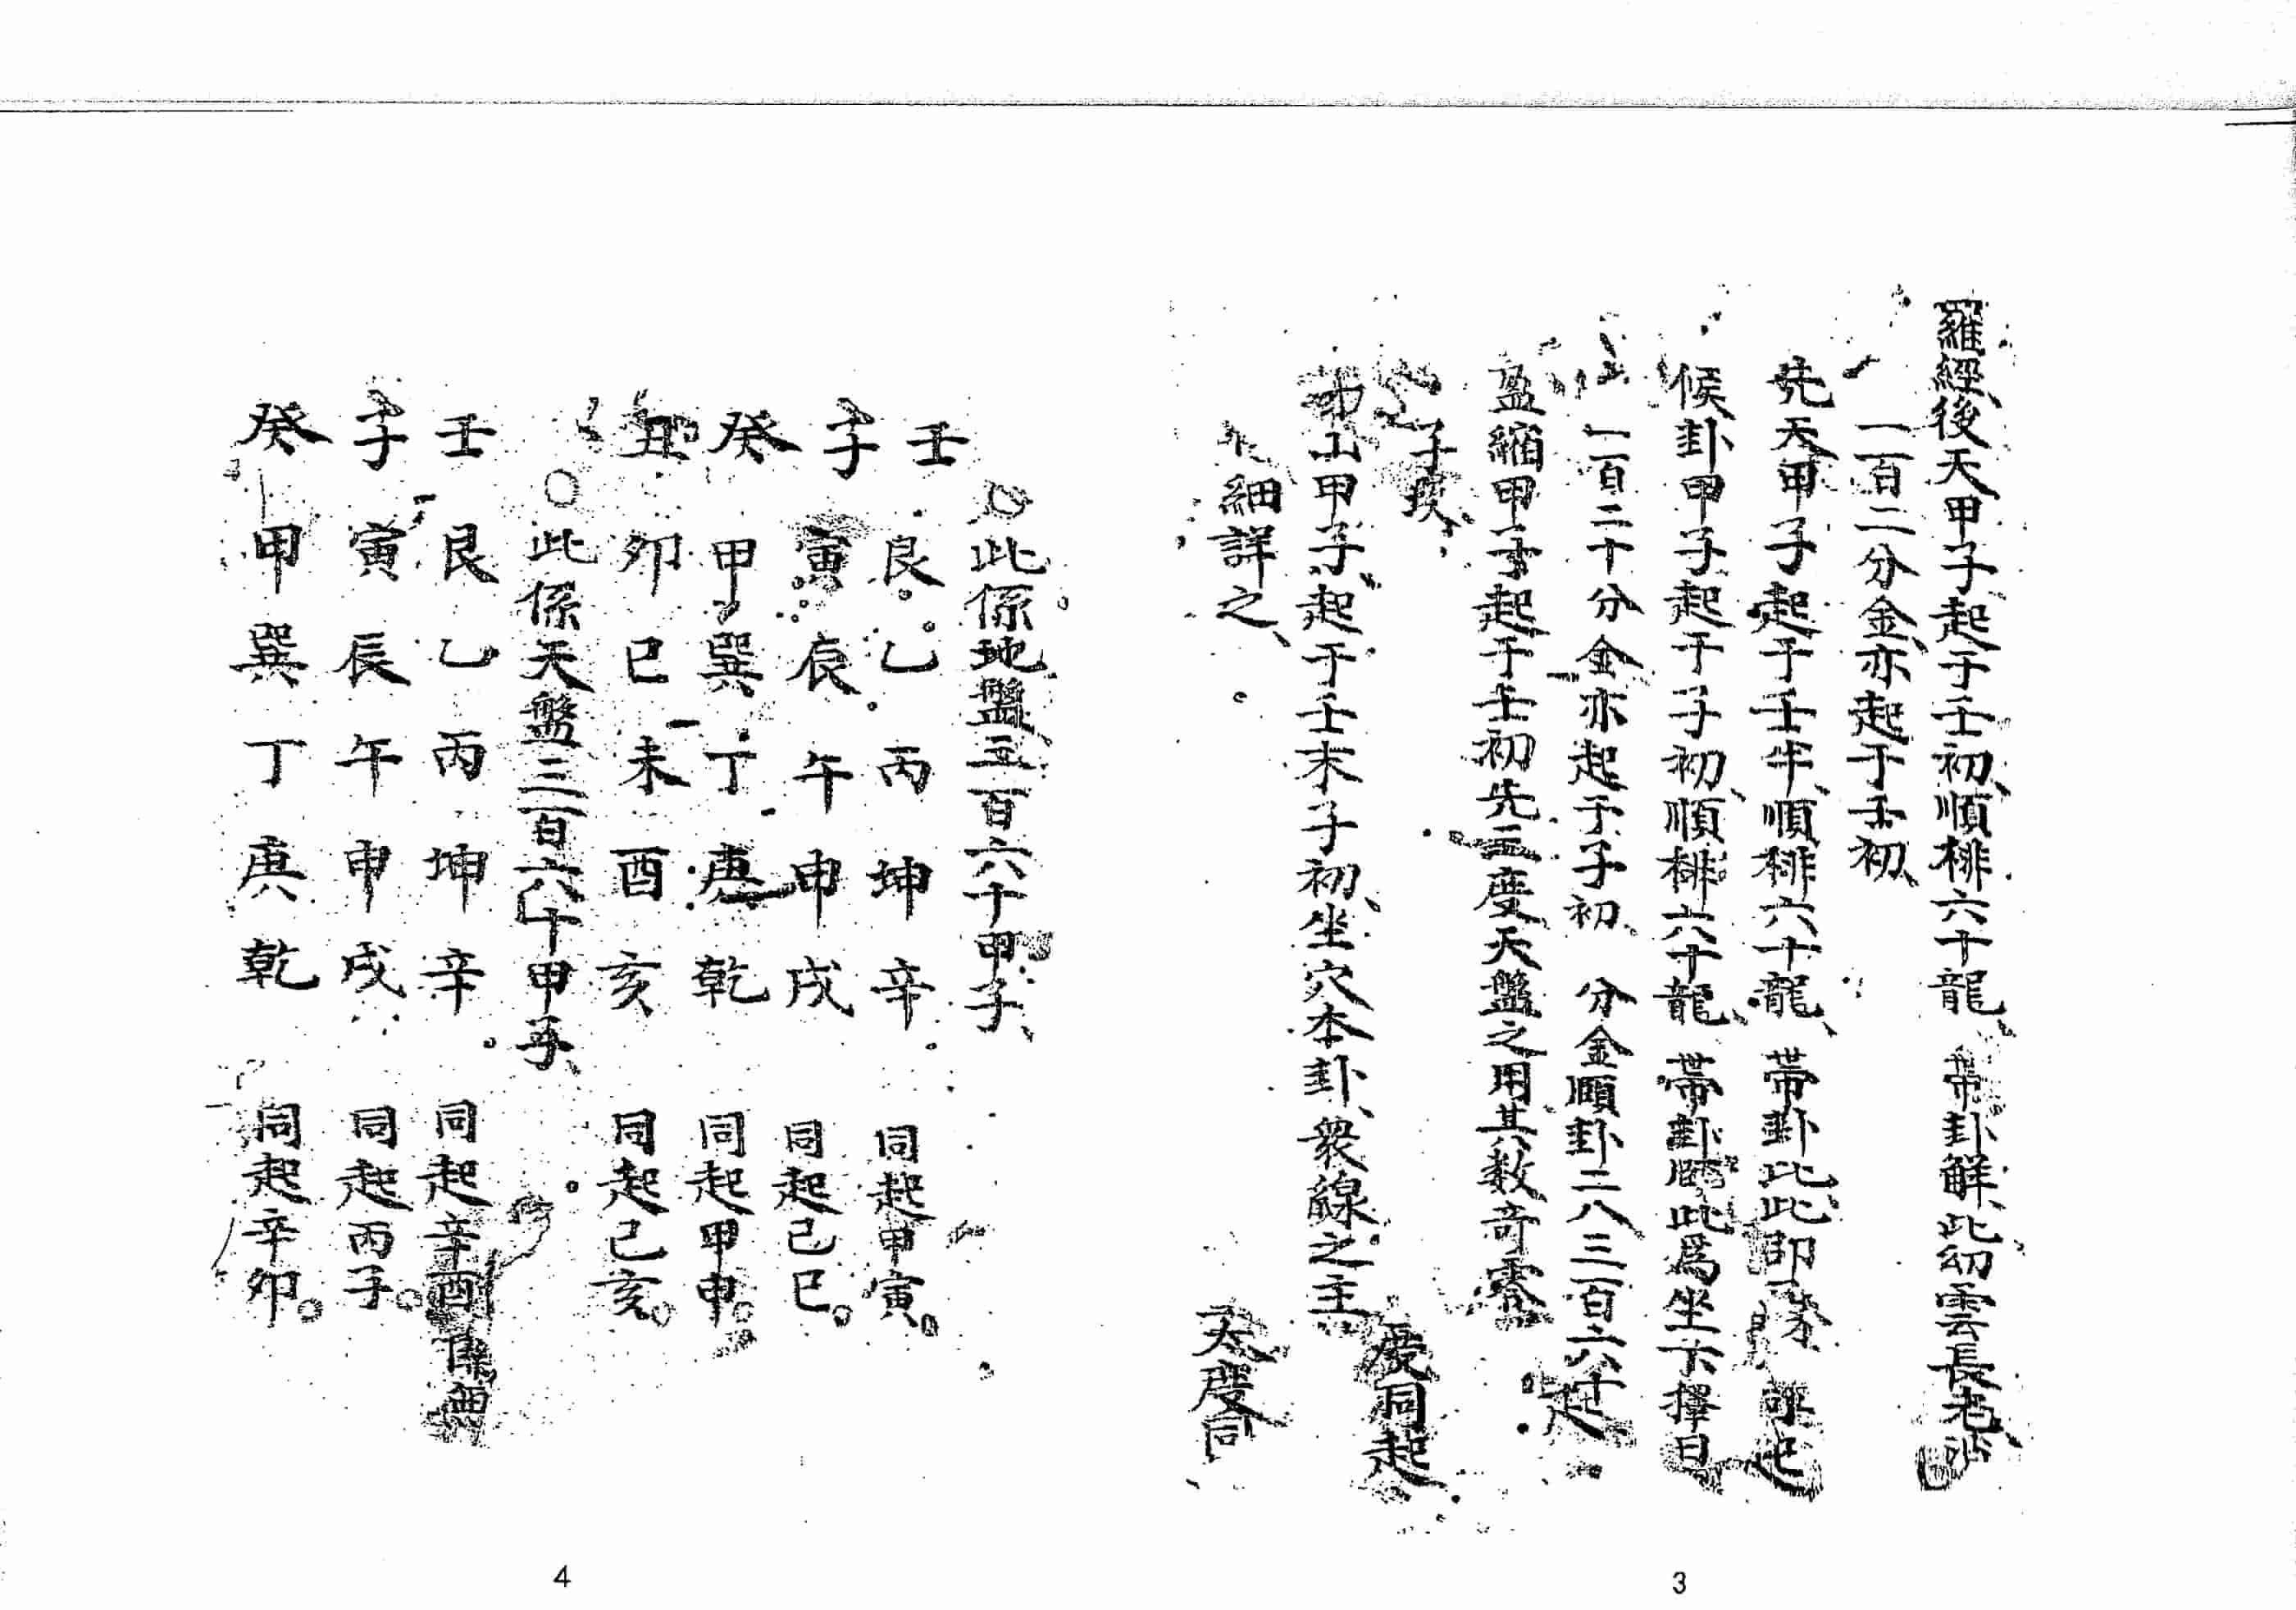 羅經、後天甲子起于壬初、順排六十龍、帶卦解、此幻雲長老
一百二分金、亦起于壬初、
先天甲子起于壬半、順排六十龍、帶卦比、此即
候卦甲子起于子初、順排六十龍、帶卦頤、此爲坐穴擇日
一百二十分金亦起于子初、分金頤卦二八三百六十
盈縮甲子起于壬初先三度天盤之用其数奇零
子坎、度同起
山甲子、起于壬末子初、坐穴本卦、衆線之主
細詳之、太度同
3
此係地盤三百六十甲子、
壬艮乙丙坤辛。同起甲寅。
子寅辰午申戌 同起己巳。
癸甲巽丁庚乾 同起甲申。
丑卯巳未酉亥 同起己亥。
〇此係天盤三百六十甲子、
壬艮乙丙坤辛。同起辛酉
子寅辰午申戌 同起丙子。
癸甲巽丁庚乾 同起辛卯。
4